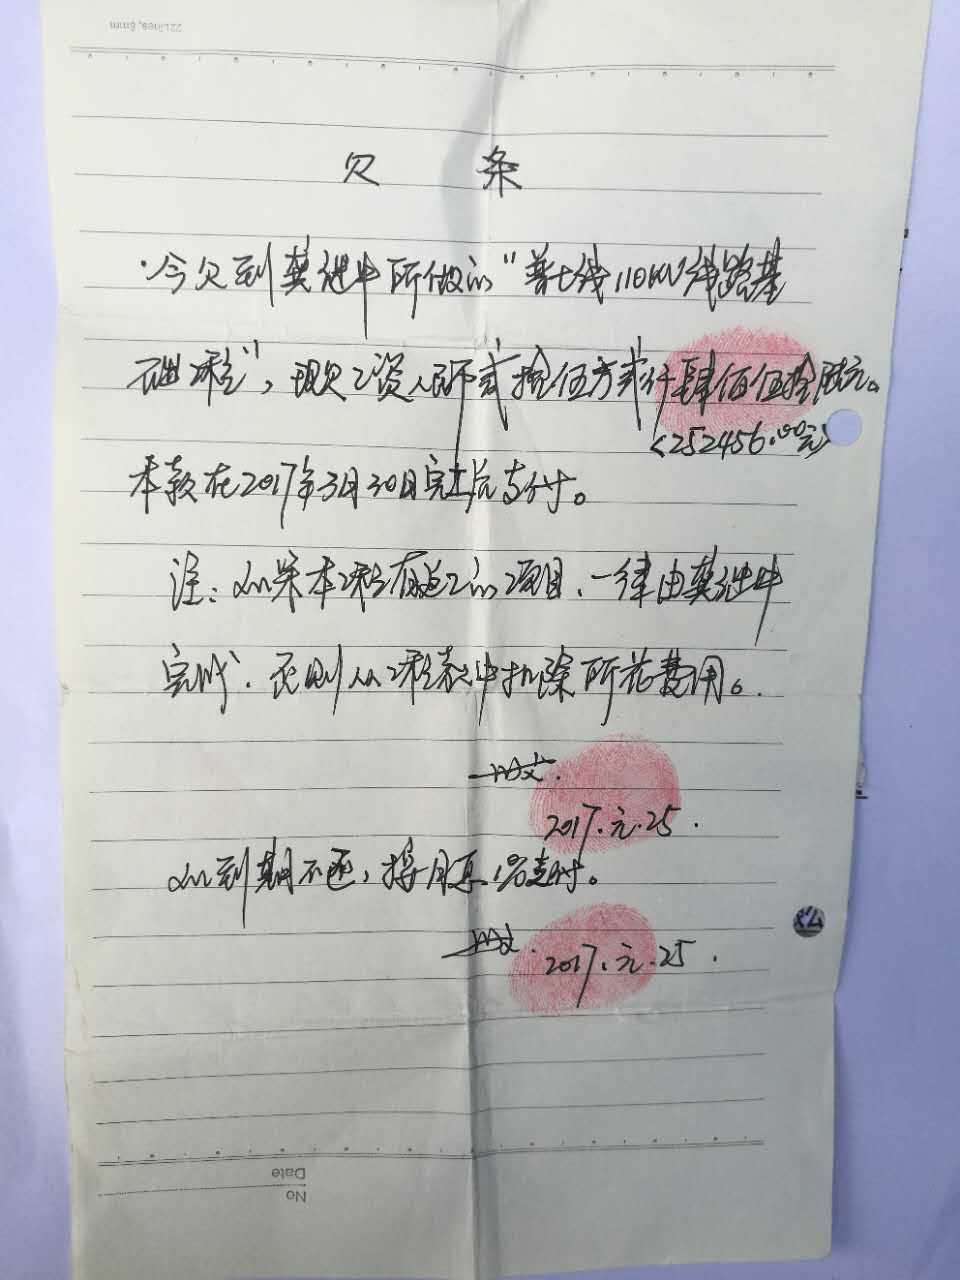 22Lines, 8mm
欠 条
今欠到龚继中所做的"普七线110KV线路基
础工程",现欠工资人民币贰拾伍万贰仟肆佰伍拾陆元。
<252456.00元>
本款在2017年3月30日完工后支付。
注:如果本工程有返工的项目、一律由龚继中
完成、否则从工程款中扣除所花费用。
2017.元.25.
如到期不还,按月息1%支付。
2017.元.25.
Date
No